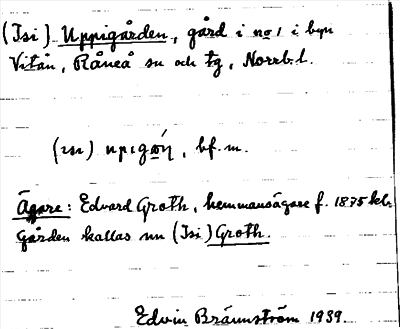 (Isi) Uppigården, gård i no 1 i byn
Vitån, Råneå sn och tg, Norrb. l.
(ısı) upıgɷ́ņ, bf. m.
Ägare: Edvard Groth, hemmansägare f. 1875 kl.
Gården kallas nu (Isi) Groth.
Edvin Brännström 1939.